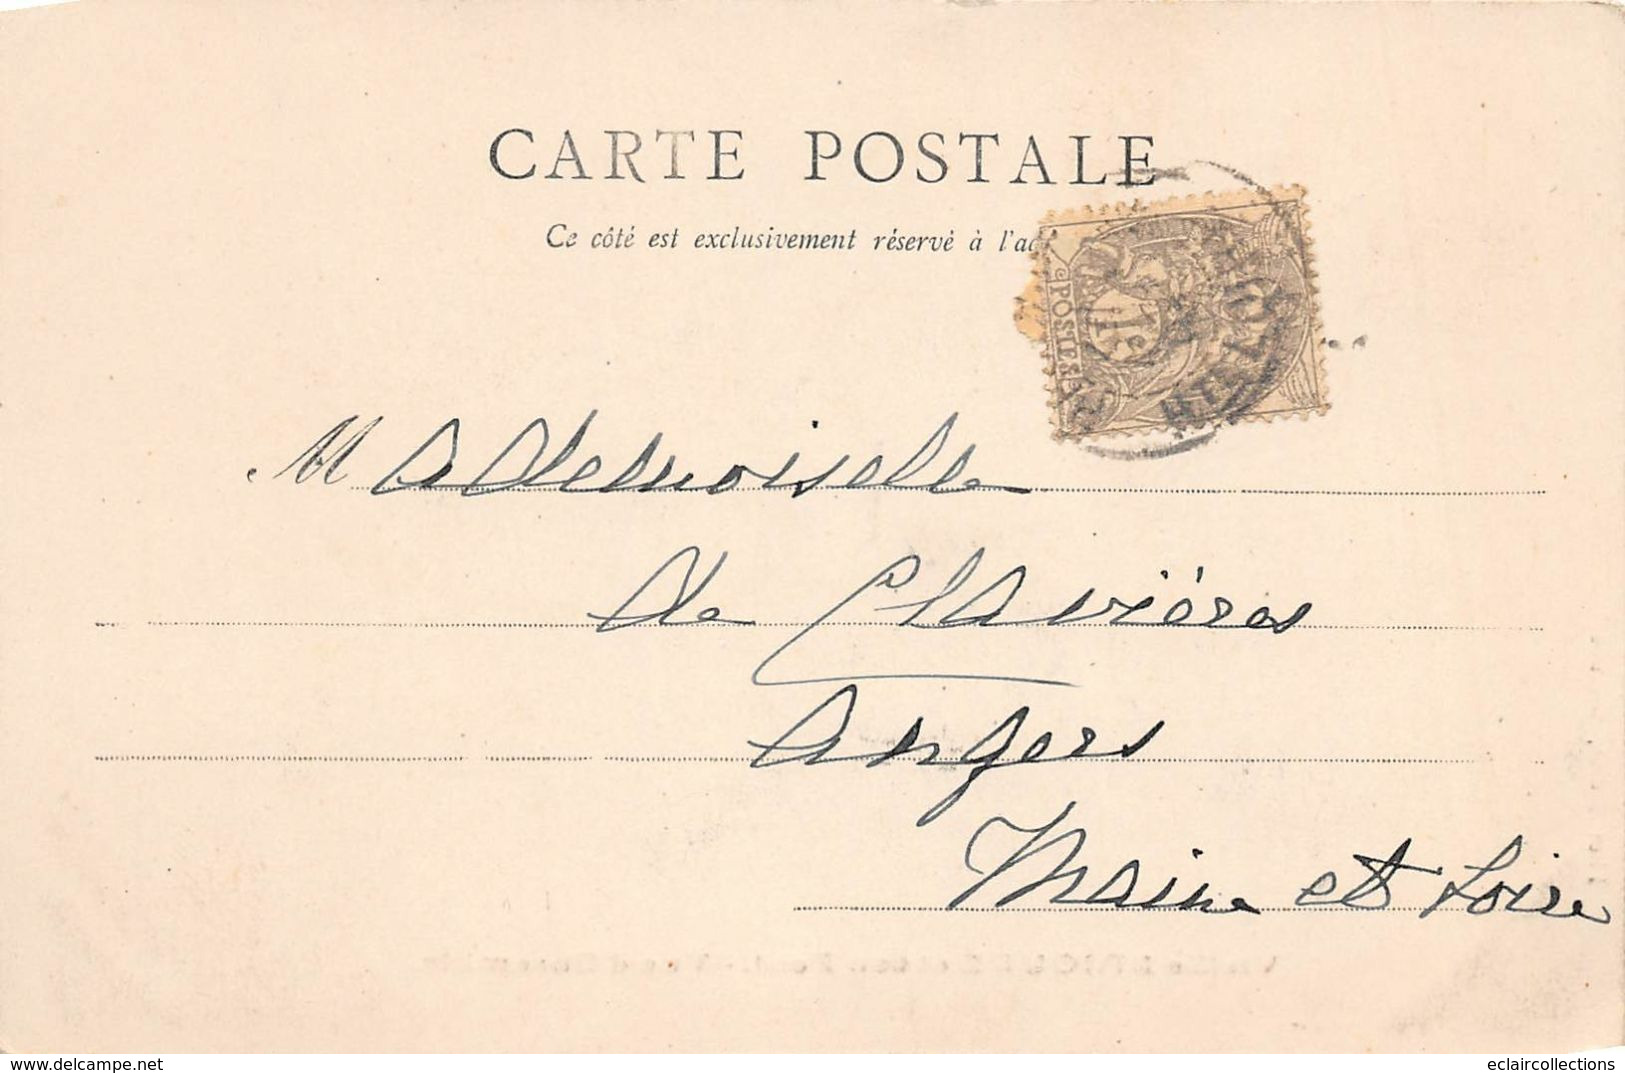 CARTE POSTALE
Ce côté est exclusivement réservé à l'ad
POSTES
1c
Mademoiselle
de Clavières
Angers
Maine et Loire
www.delcampe.net
eclaircollections